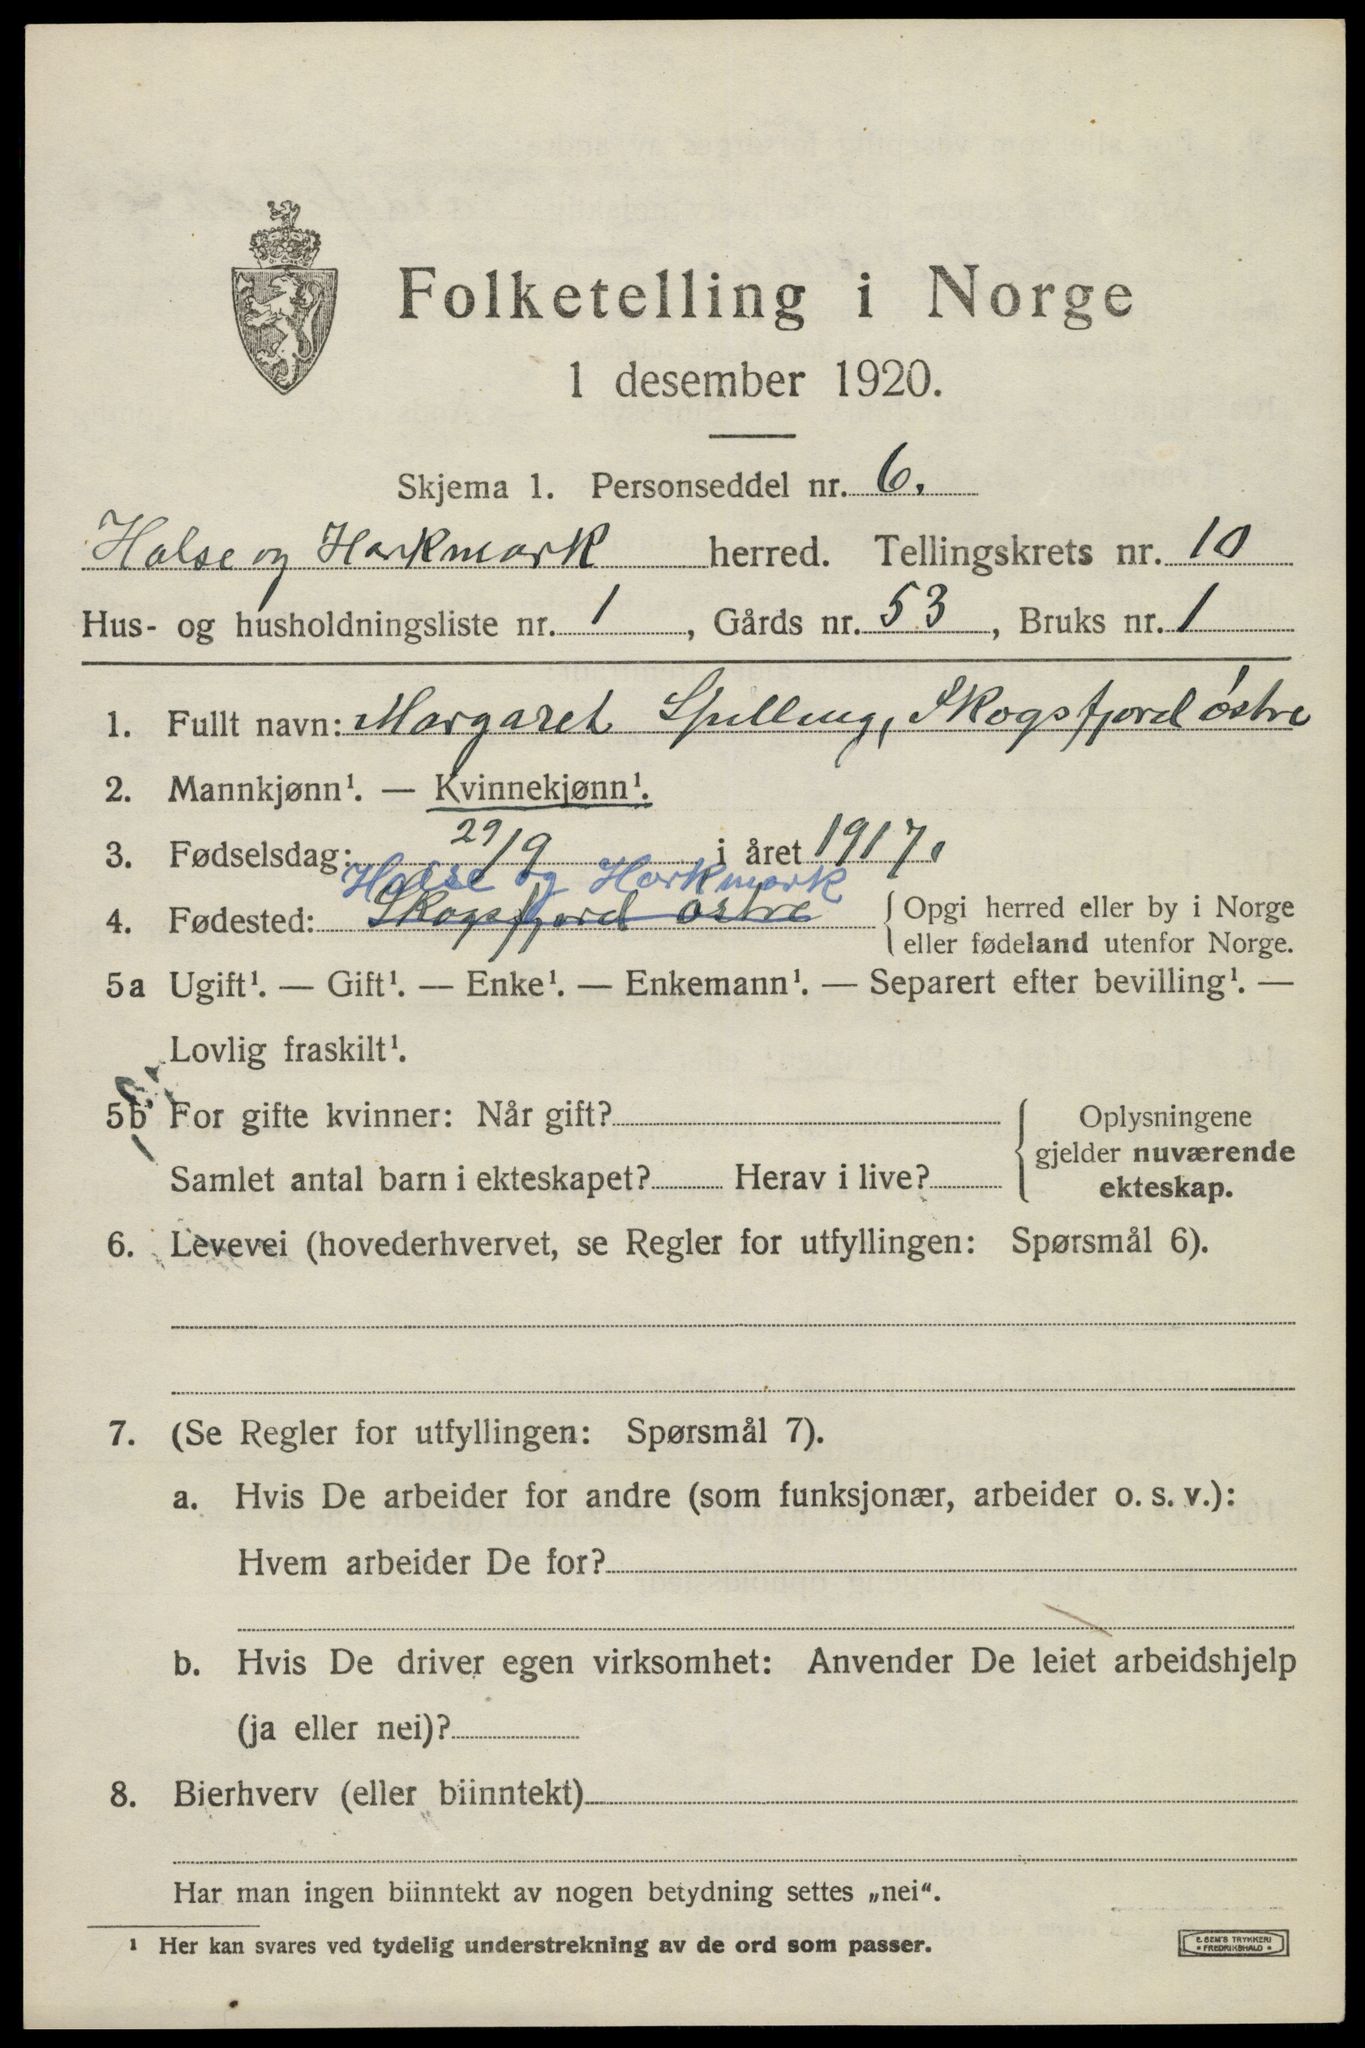 Folketelling i Norge
1 desember 1920.
Skjema 1. Personseddel nr. 6.
Halse og Harkmark herred. Tellingskrets nr. 10
Hus- og husholdningsliste nr. 1, Gårds nr. 53, Bruks nr. 1
1. Fullt navn: Margaret Spilling, Skogsfjord østre
2. Mannkjønn¹. — Kvinnekjønn¹.
3. Fødselsdag: 29/9 i året 1917.
Halse og Harkmark
4. Fødested: Skogsfjord østre { Opgi herred eller by i Norge
eller fødeland utenfor Norge.
5a Ugift¹. — Gift¹. — Enke¹. — Enkemann¹. — Separert efter bevilling¹. —
Lovlig fraskilt¹.
5b For gifte kvinner: Når gift? { Oplysningene
gjelder nuværende
Samlet antal barn i ekteskapet? Herav i live? ekteskap.
6. Levevei (hovederhvervet, se Regler for utfyllingen: Spørsmål 6).
7. (Se Regler for utfyllingen: Spørsmål 7).
a. Hvis De arbeider for andre (som funksjonær, arbeider o. s. v.):
Hvem arbeider De for?
b. Hvis De driver egen virksomhet: Anvender De leiet arbeidshjelp
(ja eller nei)?
8. Bierhverv (eller biinntekt)
Har man ingen biinntekt av nogen betydning settes „nei“.
¹ Her kan svares ved tydelig understrekning av de ord som passer.
E. SEM'S TRYKKERI
FREDRIKSHALD